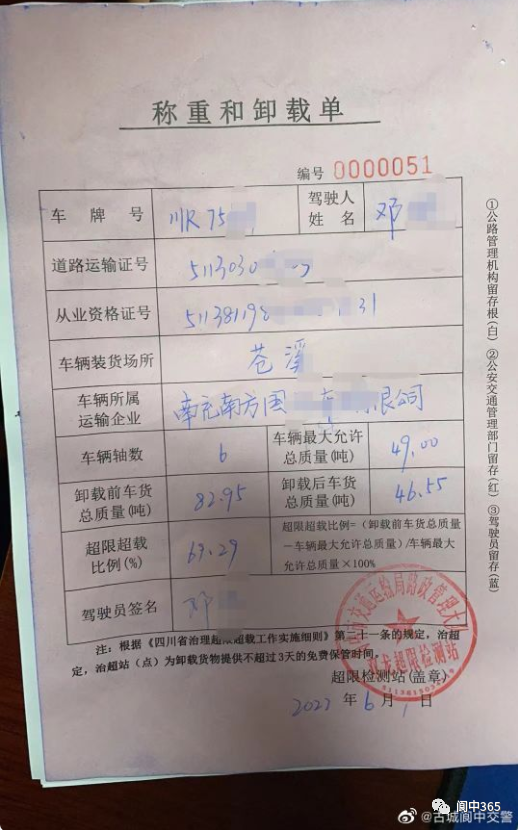 称重和卸载单
编号 0000051
车牌号 川R 75
驾驶人姓名 邓
道路运输证号 5113030
从业资格证号 51138119 31
车辆装货场所 苍溪
车辆所属运输企业 南充南方国 限公司
车辆轴数 6 车辆最大允许总质量(吨) 49.00
卸载前车货总质量(吨) 82.95 卸载后车货总质量(吨) 46.55
超限超载比例(%) 69.29 超限超载比例=(卸载前车货总质量
-车辆最大允许总质量)/车辆最大
允许总质量×100%
驾驶员签名 邓
注:根据《四川省治理超限超载工作实施细则》第二十一条的规定,治超
定,治超站(点)为卸载货物提供不超过3天的免费保管时间。
超限检测站(盖章)
2022年6月1日
①公路管理机构留存根(白) ②公安交通管理部门留存(红) ③驾驶员留存(蓝)
交通运输局路政管理大队
双龙超限检测站
阆中365
@古城阆中交警